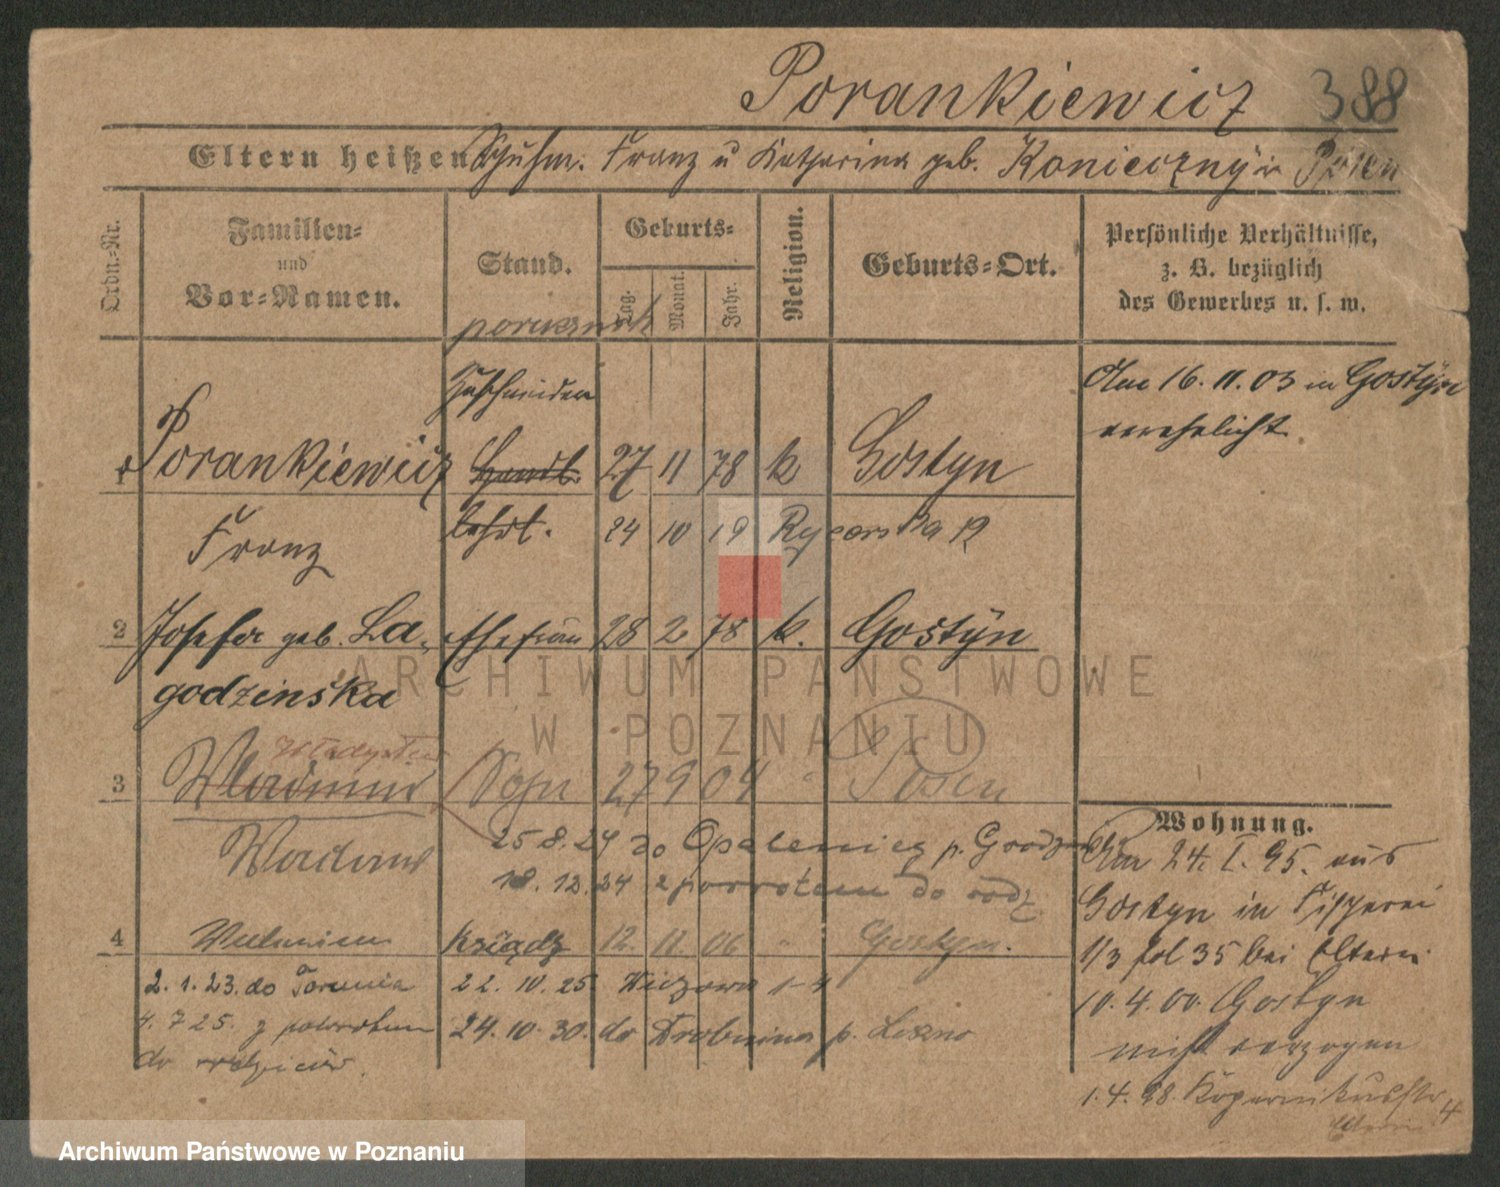 Porankiewicz 388
Eltern heißen Schuhm. Franz u Katharina geb. Konieczny in Posen
Ordn.-Nr.
Familien-
und
Vor-Namen.
Stand.
Geburts-
Tag.
Monat.
Jahr.
Religion.
Geburts-Ort.
Persönliche Verhältnisse,
z. B. bezüglich
des Gewerbes u. s. w.
porucznik
Zuschneider
Am 16. 11. 03 in Gostyn
verehelicht.
1 Porankiewicz Handl. 27 11 78 k Gostyn
Franz Lehrl. 24 10 19 Rycerska
2 Josefa geb. La- Ehefrau 28 2 78 k. Gostyn
godzinska
Władysław
3 Sohn 27 9 04 " Posen
25 8. 24 do Opalenicy p. Grodzisk
18. 12. 24 z powrotem do rodz.
4 ksiądz 12. 11. 06 " Gostyn.
2. 1. 23. do Torunia 22. 10. 25.
4. 7 25. z powrotem 24. 10. 30. do Drobnina p. Leszno
do rodziców.
Wohnung.
Am 24. I. 95. aus
Gostyn in Fischerei
1/3 fol 35 bei Eltern.
10. 4. 00. Gostyn
nicht verzogen
1. 4. 98. Kopernikusstr 4
ARCHIWUM PAŃSTWOWE
W POZNANIU
Archiwum Państwowe w Poznaniu